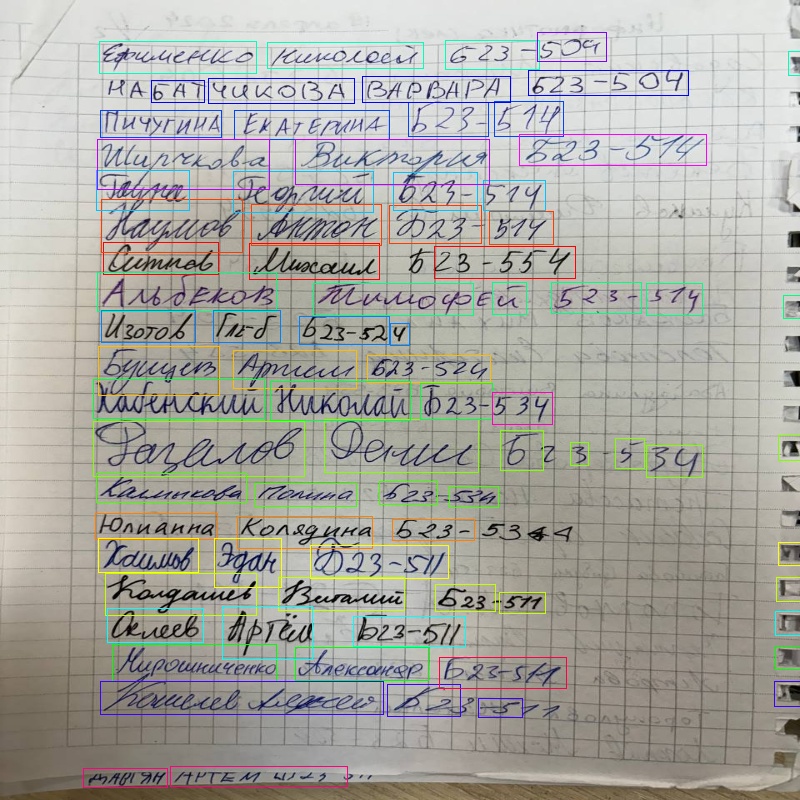 Ефименко Николай Б23-504
НАБАТЧИКОВА ВАРВАРА Б23-504
ПИЧУГИНА ЕКАТЕРИНА Б23-514
Ширчкова Виктория Б23-514
Георгий Б23-514
Наумов Антон Б23-514
Ситнов Михаил Б23-554
Альбеков Тимофей Б23-514
Изотов Глеб Б23-524
Артем Б23-524
Хабенский Николай Б23-534
Денис Б23-534
Калмыкова Полина Б23-534
Юлианна Колядина Б23-534
Хаимов Эдан Б23-511
Колдашев Виталий Б23-511
Селеев Артём Б23-511
Мирошниченко Александр Б23-511
Кошелев Алексей Б23-511
АРТЕМ Б23-511